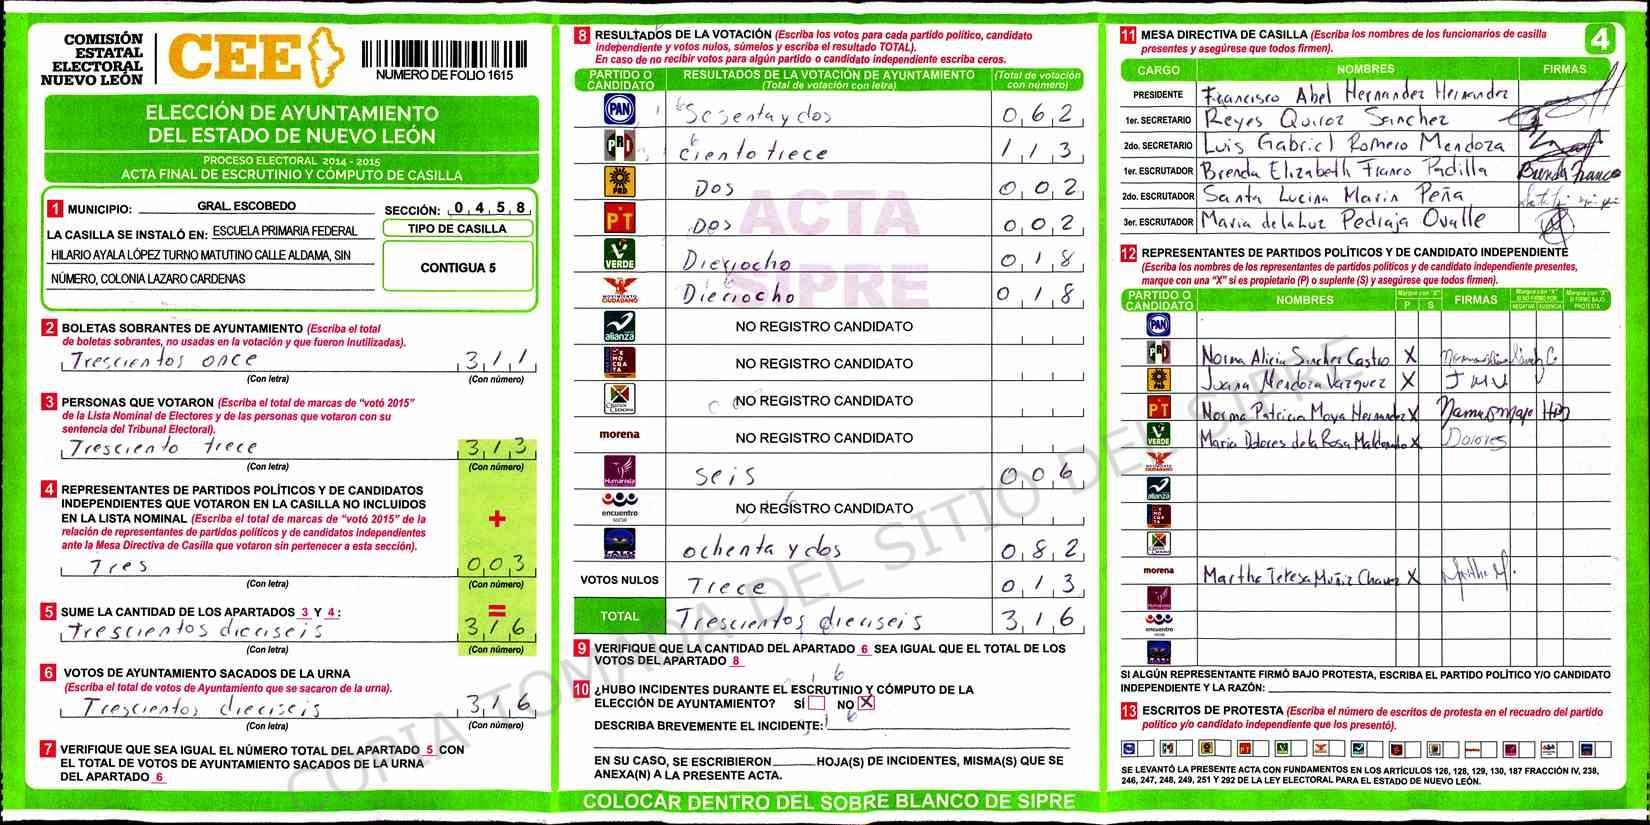 COMISIÓN
ESTATAL
ELECTORAL
NUEVO LEÓN
CEE
NUMERO DE FOLIO 1615
ELECCIÓN DE AYUNTAMIENTO
DEL ESTADO DE NUEVO LEÓN
PROCESO ELECTORAL 2014 - 2015
ACTA FINAL DE ESCRUTINIO Y CÓMPUTO DE CASILLA
1 MUNICIPIO: GRAL. ESCOBEDO
SECCIÓN: 0 4 5 8
LA CASILLA SE INSTALÓ EN: ESCUELA PRIMARIA FEDERAL
HILARIO AYALA LÓPEZ TURNO MATUTINO CALLE ALDAMA, SIN
NÚMERO, COLONIA LAZARO CARDENAS
TIPO DE CASILLA
CONTIGUA 5
2 BOLETAS SOBRANTES DE AYUNTAMIENTO (Escriba el total
de boletas sobrantes, no usadas en la votación y que fueron inutilizadas).
Trescientos once 3 1 1
(Con letra) (Con número)
3 PERSONAS QUE VOTARON (Escriba el total de marcas de "votó 2015"
de la Lista Nominal de Electores y de las personas que votaron con su
sentencia del Tribunal Electoral).
Tresciento trece 3 1 3
(Con letra) (Con número)
4 REPRESENTANTES DE PARTIDOS POLÍTICOS Y DE CANDIDATOS
INDEPENDIENTES QUE VOTARON EN LA CASILLA NO INCLUIDOS
EN LA LISTA NOMINAL (Escriba el total de marcas de "votó 2015" de la
relación de representantes de partidos políticos y de candidatos independientes
ante la Mesa Directiva de Casilla que votaron sin pertenecer a esta sección).
+
Tres 0 0 3
(Con letra) (Con número)
5 SUME LA CANTIDAD DE LOS APARTADOS 3 Y 4:
=
Trescientos dieciseis 3 1 6
(Con letra) (Con número)
6 VOTOS DE AYUNTAMIENTO SACADOS DE LA URNA
(Escriba el total de votos de Ayuntamiento que se sacaron de la urna).
Trescientos dieciseis 3 1 6
(Con letra) (Con número)
7 VERIFIQUE QUE SEA IGUAL EL NÚMERO TOTAL DEL APARTADO 5 CON
EL TOTAL DE VOTOS DE AYUNTAMIENTO SACADOS DE LA URNA
DEL APARTADO 6
8 RESULTADOS DE LA VOTACIÓN (Escriba los votos para cada partido político, candidato
independiente y votos nulos, súmelos y escriba el resultado TOTAL).
En caso de no recibir votos para algún partido o candidato independiente escriba ceros.
PARTIDO O CANDIDATO
RESULTADOS DE LA VOTACIÓN DE AYUNTAMIENTO
(Total de votación con letra)
(Total de votación con número)
PAN Sesenta y dos 0 6 2
PRI ciento trece 1 1 3
PRD Dos 0 0 2
PT Dos 0 0 2
VERDE Dieciocho 0 1 8
MOVIMIENTO CIUDADANO Dieciocho 0 1 8
alianza NO REGISTRO CANDIDATO
DEMOCRATA NO REGISTRO CANDIDATO
NO REGISTRO CANDIDATO
morena NO REGISTRO CANDIDATO
Humanista seis 0 0 6
encuentro social NO REGISTRO CANDIDATO
ochenta y dos 0 8 2
VOTOS NULOS Trece 0 1 3
TOTAL Trescientos dieciseis 3 1 6
ACTA
SIPRE
9 VERIFIQUE QUE LA CANTIDAD DEL APARTADO 6 SEA IGUAL QUE EL TOTAL DE LOS
VOTOS DEL APARTADO 8
10 ¿HUBO INCIDENTES DURANTE EL ESCRUTINIO Y CÓMPUTO DE LA
ELECCIÓN DE AYUNTAMIENTO? SÍ NO X
DESCRIBA BREVEMENTE EL INCIDENTE:
EN SU CASO, SE ESCRIBIERON HOJA(S) DE INCIDENTES, MISMA(S) QUE SE
ANEXA(N) A LA PRESENTE ACTA.
COLOCAR DENTRO DEL SOBRE BLANCO DE SIPRE
11 MESA DIRECTIVA DE CASILLA (Escriba los nombres de los funcionarios de casilla
presentes y asegúrese que todos firmen).
4
CARGO NOMBRES FIRMAS
PRESIDENTE Francisco Abel Hernandez Hernandez
1er. SECRETARIO Reyes Quiroz Sanchez
2do. SECRETARIO Luis Gabriel Romero Mendoza
1er. ESCRUTADOR Brenda Elizabeth Franco Padilla Brenda Franco
2do. ESCRUTADOR Santa Lucina Marin Peña
3er. ESCRUTADOR Maria de la Luz Pedraja Ovalle
12 REPRESENTANTES DE PARTIDOS POLÍTICOS Y DE CANDIDATO INDEPENDIENTE
(Escriba los nombres de los representantes de partidos políticos y de candidato independiente presentes,
marque con una "X" si es propietario (P) o suplente (S) y asegúrese que todos firmen).
PARTIDO O CANDIDATO
NOMBRES
Marque con "X"
P S
FIRMAS
Marque con "X" SI NO FIRMÓ POR
NEGATIVA AUSENCIA
Marque con "X" SI FIRMÓ BAJO PROTESTA
PAN
PRI Norma Alicia Sanchez Castro X
PRD Juana Mendoza Vazquez X J M V
PT Norma Patricia Moya Hernandez X
VERDE Maria Dolores de la Rosa Maldonado X Dolores
MOVIMIENTO CIUDADANO
alianza
morena Martha Teresa Muñiz Chavez X Martha M.
Humanista
encuentro social
SI ALGÚN REPRESENTANTE FIRMÓ BAJO PROTESTA, ESCRIBA EL PARTIDO POLÍTICO Y/O CANDIDATO
INDEPENDIENTE Y LA RAZÓN:
13 ESCRITOS DE PROTESTA (Escriba el número de escritos de protesta en el recuadro del partido
político y/o candidato independiente que los presentó).
SE LEVANTÓ LA PRESENTE ACTA CON FUNDAMENTOS EN LOS ARTÍCULOS 126, 128, 129, 130, 187 FRACCIÓN IV, 238,
246, 247, 248, 249, 251 Y 292 DE LA LEY ELECTORAL PARA EL ESTADO DE NUEVO LEÓN.
COPIA TOMADA DEL SITIO DEL SIPRE